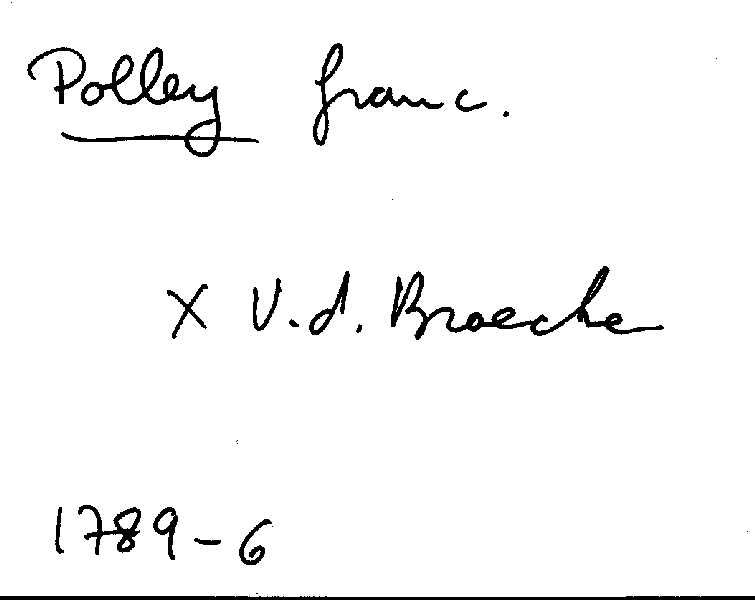 Polley franc.
X V.d. Broecke
1789-6